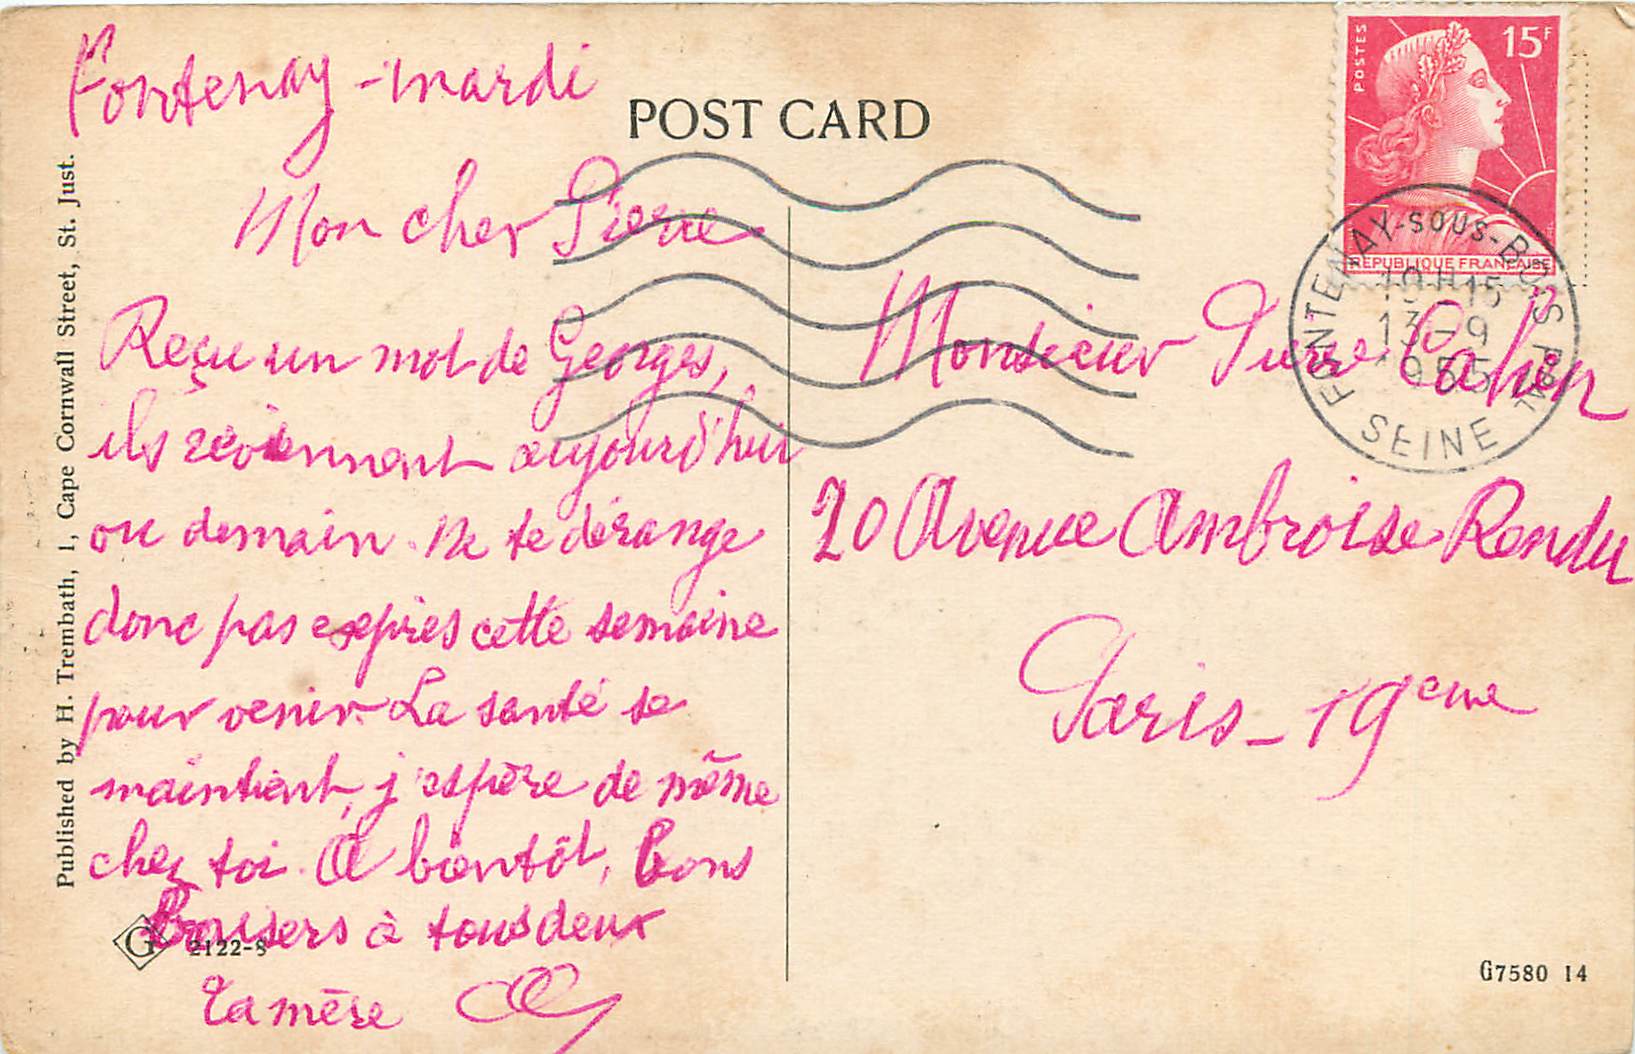 Fontenay - mardi
Mon cher Pierre
Reçu un mot de Georges,
ils reviennent aujourd'hui
ou demain. Ne te dérange
donc pas exprès cette semaine
pour venir. La santé se
maintient, j'espère de même
chez toi. A bientôt, bons
baisers à tous deux
Ta mère
POST CARD
Published by H. Trembath, 1, Cape Cornwall Street, St. Just.
G
2122-8
POSTES
15F
REPUBLIQUE FRANÇAISE
FONTENAY-SOUS-BOIS PPAL
19H15
13-9
1955
SEINE
Monsieur Pierre Cahen
20 Avenue Ambroise Rendu
Paris - 19eme
G7580 14